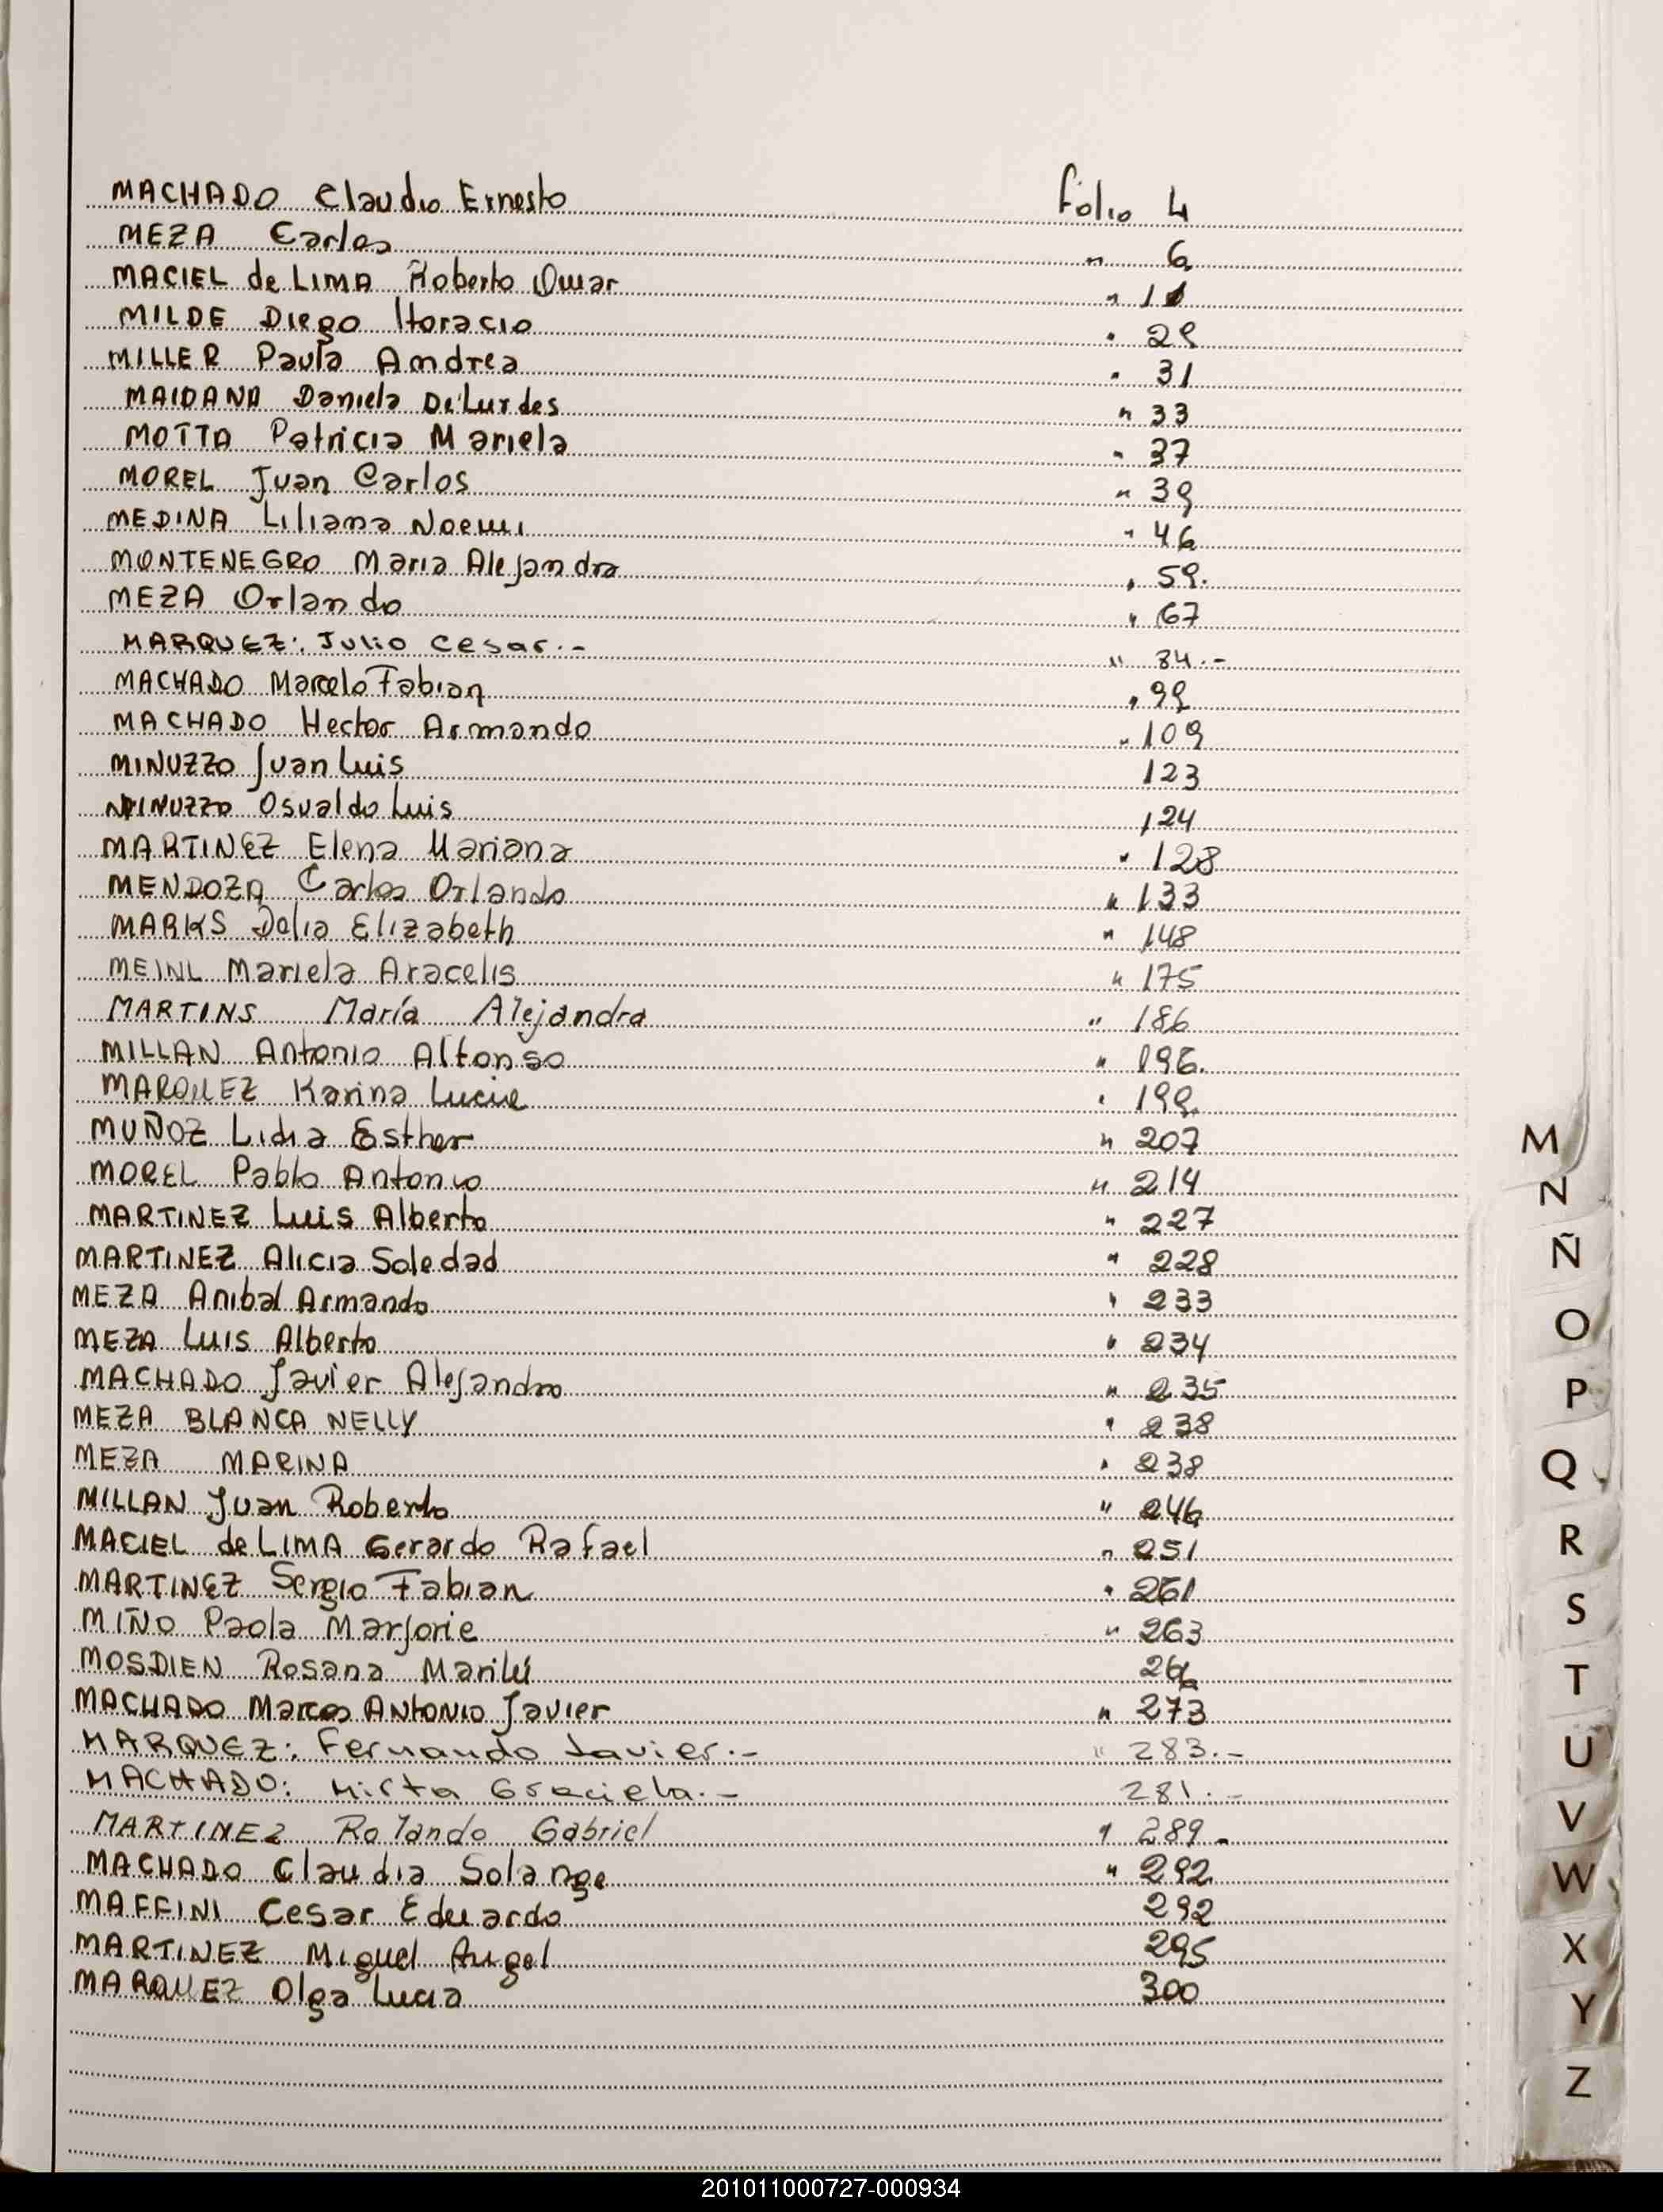 MACHADO Claudio Ernesto folio 4
MEZA Carlos " 6
MACIEL de LIMA Roberto Omar "
MILDE Diego Horacio " 29
MILLER Paula Andrea " 31
MAIDANA Daniela De Lurdes " 33
MOTTA Patricia Mariela " 37
MOREL Juan Carlos " 39
MEDINA Liliana Noemi " 46
MONTENEGRO Maria Alejandra " 59.
MEZA Orlando " 67
MARQUEZ: Julio Cesar.- " 84.-
MACHADO Marcelo Fabian " 99
MACHADO Hector Armando " 109
MINUZZO Juan Luis 123
MINUZZO Osvaldo Luis 124
MARTINEZ Elena Mariana " 128
MENDOZA Carlos Orlando " 133
MARKS Delia Elizabeth " 148
MEINL Mariela Aracelis " 175
MARTINS María Alejandra " 186
MILLAN Antonio Alfonso " 196.
MARQUEZ Karina Lucia " 199
MUÑOZ Lidia Esther " 207
MOREL Pablo Antonio " 214
MARTINEZ Luis Alberto " 227
MARTINEZ Alicia Soledad " 228
MEZA Anibal Armando " 233
MEZA Luis Alberto " 234
MACHADO Javier Alejandro " 235
MEZA BLANCA NELLY " 238
MEZA MARINA " 238
MILLAN Juan Roberto " 246
MACIEL de LIMA Gerardo Rafael " 251
MARTINEZ Sergio Fabian " 261
MIÑO Paola Marjorie " 263
MOSDIEN Rosana Marilú 266
MACHADO Marcos ANTONIO Javier " 273
MARQUEZ: Fernando Javier.- " 283.-
MACHADO: Mirta Graciela.- 281.-
MARTINEZ Rolando Gabriel " 289-
MACHADO Claudia Solange " 292
MAFFINI Cesar Eduardo 292
MARTINEZ Miguel Angel 295
MARQUEZ Olga Lucia 300
M
N
Ñ
O
P
Q
R
S
T
U
V
W
X
Y
Z
201011000727-000934